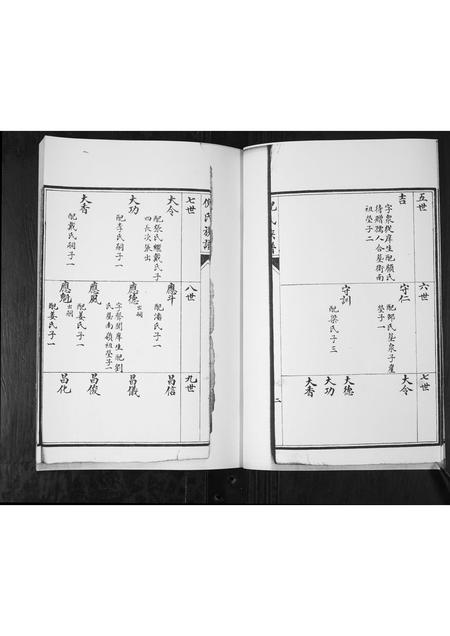 五世
吉
字泉從庠生配顏氏
待贈孺人合塋街南
祖塋子二
六世
守仁
配邱氏塋泉子崖
塋子一
守訓
配梁氏子三
七世
大令
大德
大功
大香
二
氏族譜
七世
大令
配張氏繼戴氏子
四長次張出
大功
配李氏嗣子一
大香
配戴氏嗣子一
八世
應斗
配潘氏子一
應德
出嗣
字聲聞庠生配劉
氏塋南嶺祖塋子二
應風
配姜氏子一
應魁
出嗣
配姜氏子一
九世
昌信
昌儀
昌俊
昌化